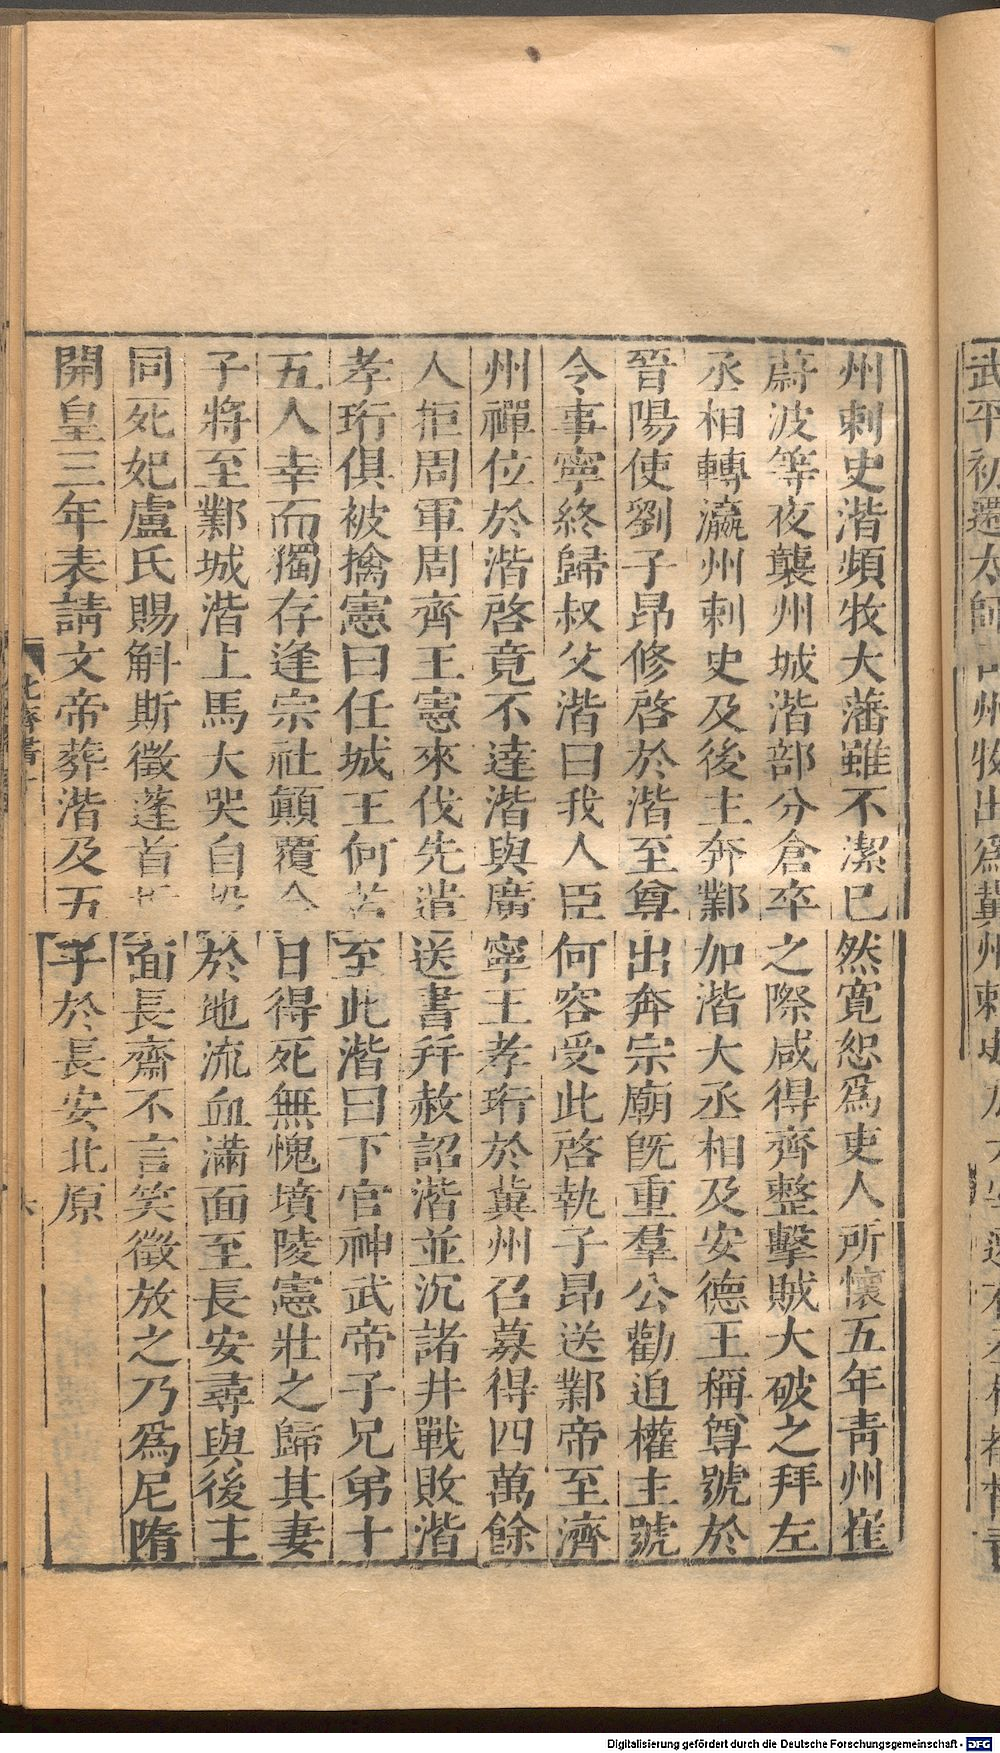 州刺史湝頻牧大藩雖不潔已然寛恕爲吏人所懷五年青州崔
蔚波等夜襲州城湝部分倉卒之際咸得齊整擊賊大破之拜左
丞相轉瀛州刺史及後主奔鄴加湝大丞相及安德王稱尊號於
晉陽使劉子昂修啓於湝至尊出奔宗廟旣重羣公勸迫權主號
令事寧終歸叔父湝曰我人臣何容受此啓執子昂送鄴帝至濟
州禪位於湝啓竟不達湝與廣寧王孝珩於冀州召募得四萬餘
人拒周軍周齊王憲來伐先遣送書幷赦詔湝並沉諸井戰敗湝
孝珩俱被擒憲曰任城王何苦至此湝曰下官神武帝子兄弟十
五人幸而獨存逢宗社顚覆今日得死無愧墳陵憲壯之歸其妻
子將至鄴城湝上馬大哭自投於地流血滿面至長安尋與後主
同死妃盧氏賜斛斯徵蓬首垢面長齋不言笑徵放之乃爲尼隋
開皇三年表請文帝葬湝及五子於長安北原
北齊書十
六
武平初遷太師州牧出爲冀州刺
Digitalisierung gefördert durch die Deutsche Forschungsgemeinschaft - DFG